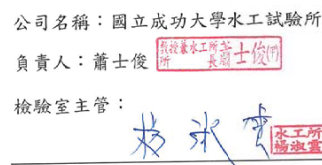 公司名稱：國立成功大學水工試驗所
負責人：蕭士俊 教授兼水工所所長蕭士俊(丙)
檢驗室主管：
楊淑雲 水工所楊淑雲